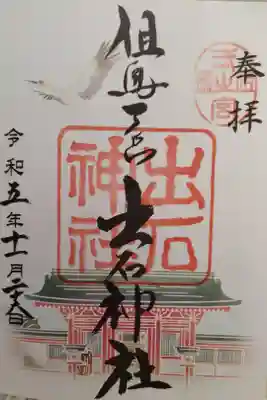 奉拝
但馬一宮 出石神社
出石
神社
令和五年十一月二十六日